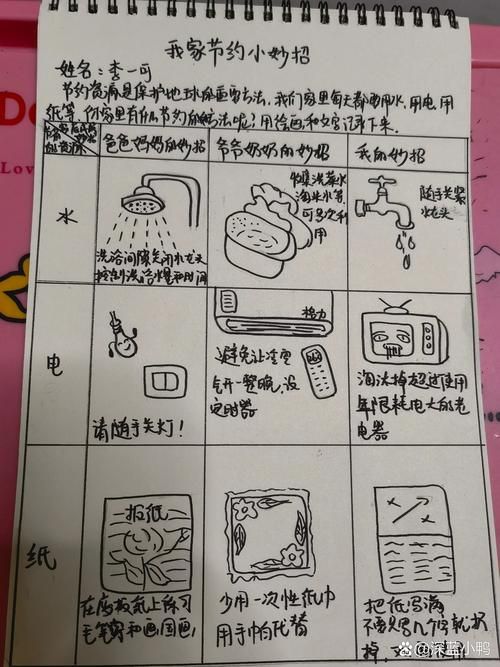 我家节约小妙招
姓名：李一可
节约资源是保护地球的重要方法，我们家里每天都要用水、用电、用
纸等，你家里有什么节约的好方法呢？用绘画和文字记录下来。
爸爸妈妈的妙招
爷爷奶奶的妙招
我的妙招
水
洗浴间隙关闭水龙头
控制洗浴水量和时间
收集洗菜水
淘米水等
可多次利
用
随手关紧
水龙头
电
请随手关灯！
格力
避免让空调
开一整晚，设
定时器
淘汰掉超过使用
年限耗电大的老
电器
纸
一报纸
在废报纸上练习
毛笔字和画国画！
少用一次性纸巾
用手帕代替
把纸写满
不要只写几个字就扔
掉，
Do
Love
@深蓝小鸭